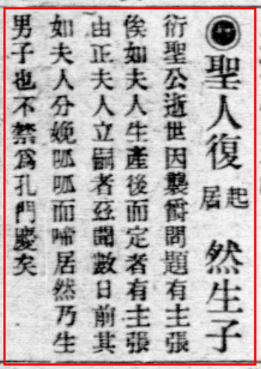 聖人復起居然生子
衍聖公逝世因襲爵問題有主張
俟如夫人生產後而定者有主張
由正夫人立嗣者茲聞數日前其
如夫人分娩呱呱而啼居然乃生
男子也不禁爲孔門慶矣